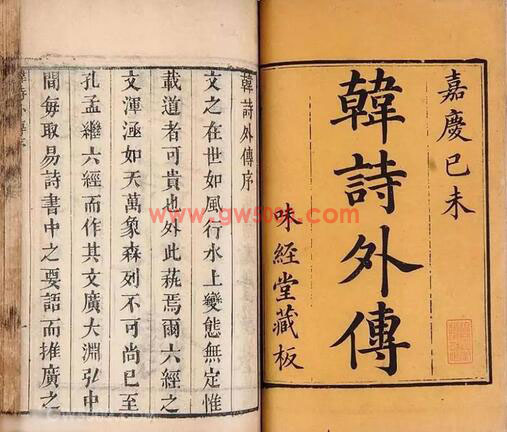 嘉慶巳未
韓詩外傳
味經堂藏板
韓詩外傳序
文之在世如風行水上變態無定惟
載道者可貴也外此蓺焉爾六經之
文渾涵如天萬象森列不可尚已至
孔孟繼六經而作其文廣大淵弘中
間每取易詩書中之要語而推廣之